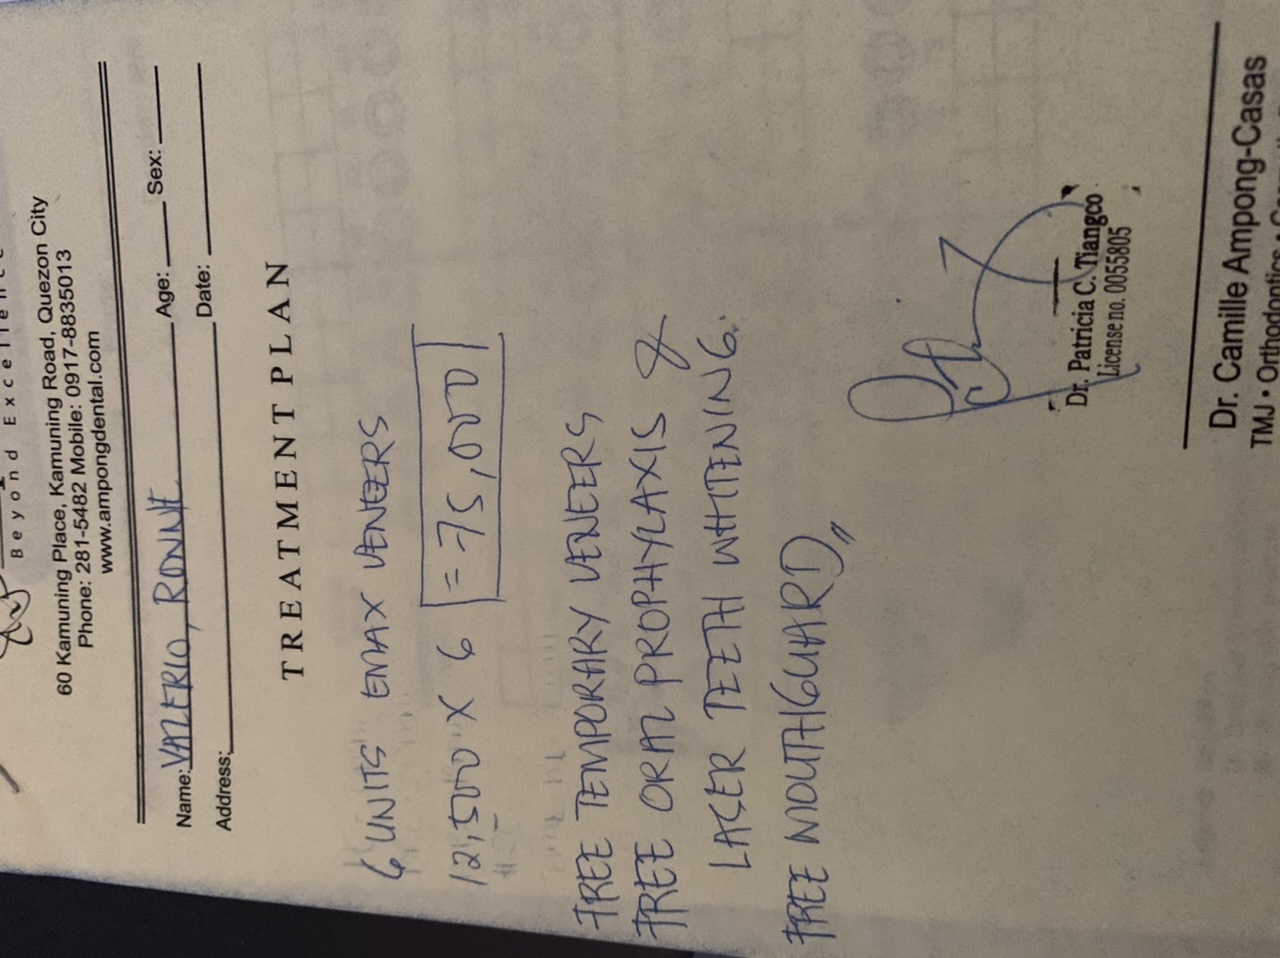 Beyond Excellence
60 Kamuning Place, Kamuning Road, Quezon City
Phone: 281-5482 Mobile: 0917-8835013
www.ampongdental.com
Name: VALERIO, RONNE Age: Sex:
Address: Date:
TREATMENT PLAN
6 UNITS EMAX VENEERS
12,500 X 6 = 75,000
FREE TEMPORARY VENEERS
FREE ORAL PROPHYLAXIS &
LASER TEETH WHITENING.
FREE MOUTHGUARD
Dr. Patricia C. Tiangco
License no. 0055805
Dr. Camille Ampong-Casas
TMJ • Orthodontics •